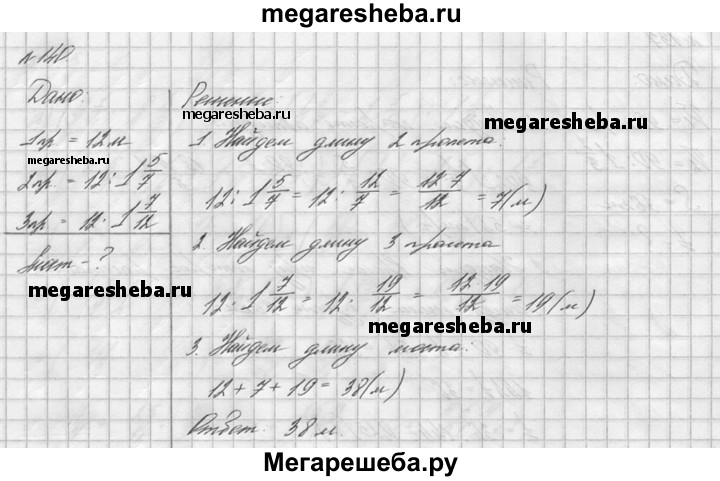 megaresheba.ru
№140
Дано:
1пр = 12м
megaresheba.ru
2пр = 12 : 1 5/7
3пр = 12 : 1 7/12
Lмост - ?
megaresheba.ru
Решение:
megaresheba.ru
megaresheba.ru
1. Найдем длину 2 пролета:
12 : 1 5/7 = 12 : 12/7 = 12·7/12 = 7(м)
2. Найдем длину 3 пролета
12 · 1 7/12 = 12 · 19/12 = 12·19/12 = 19(м)
megaresheba.ru
3. Найдем длину моста:
12 + 7 + 19 = 38(м)
Ответ: 38 м.
Мегарешеба.ру